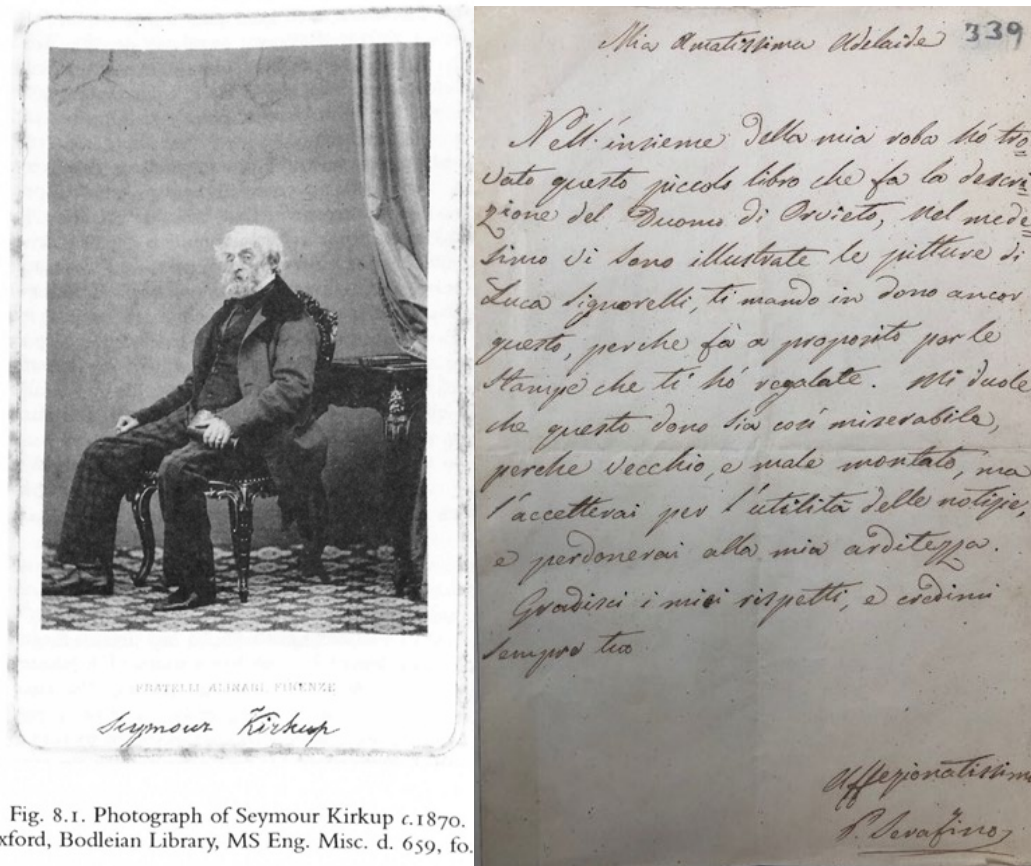 FRATELLI ALINARI FIRENZE
Seymour Kirkup
Fig. 8.1. Photograph of Seymour Kirkup c.1870.
xford, Bodleian Library, MS Eng. Misc. d. 659, fo.
339
Mia Amatissima Adelaide
Nell'insieme della mia roba hó tro=
vato questo piccolo libro che fa la descri=
zione del Duomo di Orvieto, nel mede=
simo vi sono illustrate le pitture di
Luca Signorelli, ti mando in dono ancor
questo, perche fà a proposito per le
Stampe che ti hó regalate. Mi duole
che questo dono sia così miserabile,
perche vecchio, e male montato, ma
l'accetterai per l'utilità delle notizie,
e perdonerai alla mia arditezza.
Gradisci i miei rispetti, e credimi
sempre tuo
Affezionatissimo
P. Serafino